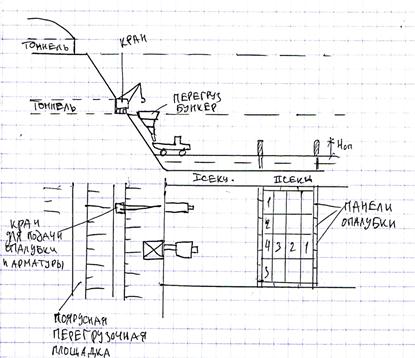 ТОННЕЛЬ
КРАН
ТОННЕЛЬ
ПЕРЕГРУЗ
БУНКЕР
Hоп
I СЕКЦ.
II СЕКЦ
1
2
4 3 2 1
3
ПАНЕЛИ
ОПАЛУБКИ
КРАН
ДЛЯ ПОДАЧИ
ОПАЛУБКИ
И АРМАТУРЫ
ПОЯРУСНАЯ
ПЕРЕГРУЗОЧНАЯ
ПЛОЩАДКА